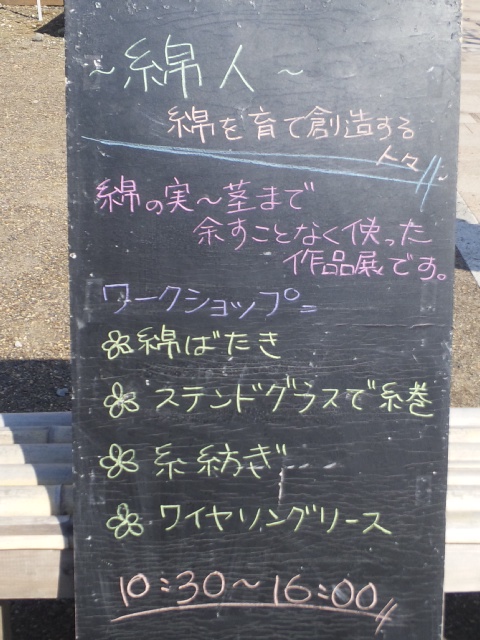 ～綿人～
綿を育て創造する
人々
綿の実～茎まで
余すことなく使った
作品展です。
ワークショップ
綿ばたき
ステンドグラスで糸巻
糸紡ぎ
ワイヤリングリース
10:30～16:00